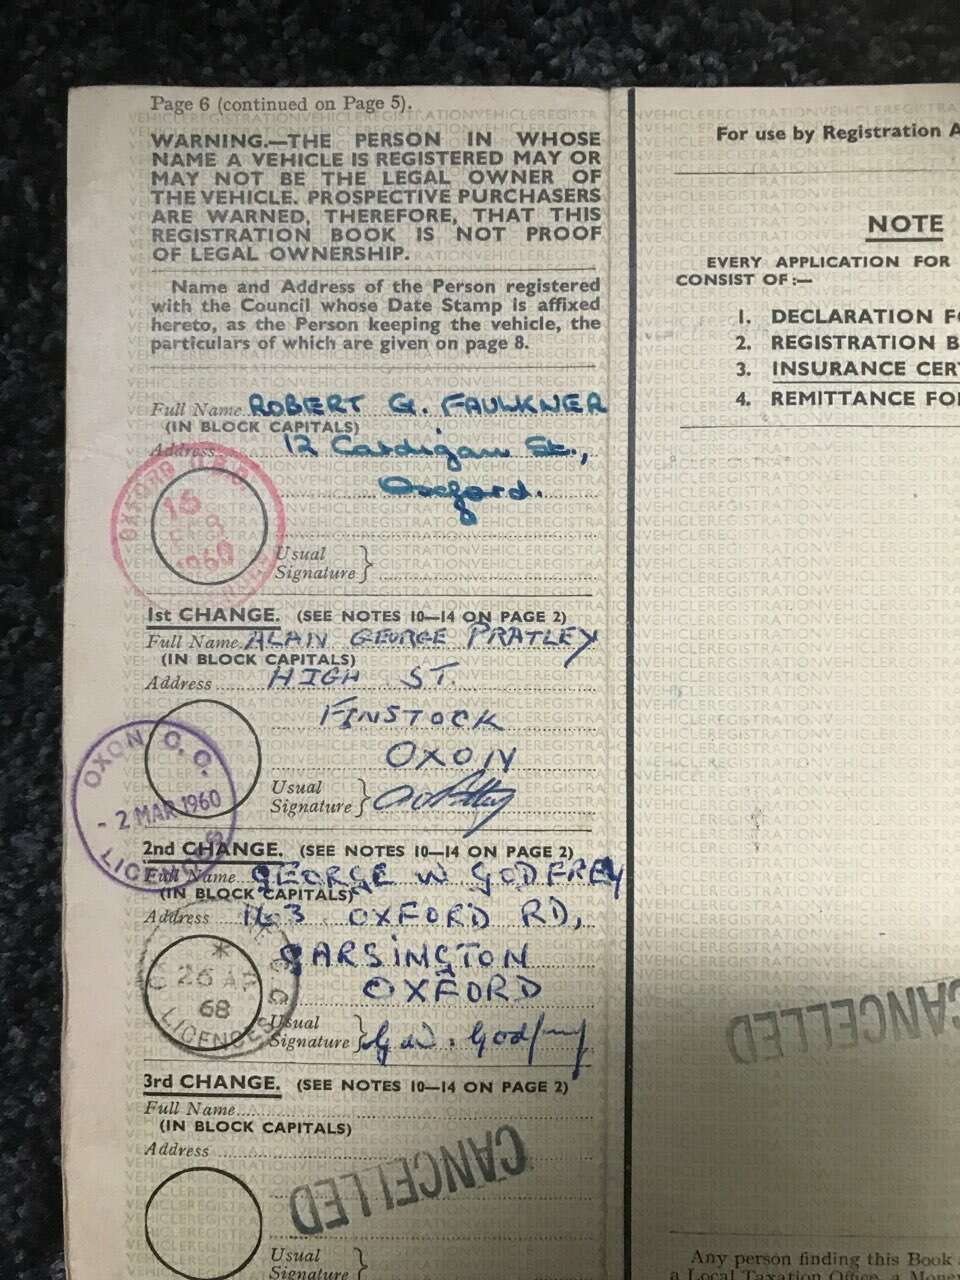 Page 6 (continued on Page 5).
WARNING.—THE PERSON IN WHOSE
NAME A VEHICLE IS REGISTERED MAY OR
MAY NOT BE THE LEGAL OWNER OF
THE VEHICLE. PROSPECTIVE PURCHASERS
ARE WARNED, THEREFORE, THAT THIS
REGISTRATION BOOK IS NOT PROOF
OF LEGAL OWNERSHIP.
Name and Address of the Person registered
with the Council whose Date Stamp is affixed
hereto, as the Person keeping the vehicle, the
particulars of which are given on page 8.
Full Name ROBERT G. FAULKNER
(IN BLOCK CAPITALS)
Address 12 Cardigan St.,
Oxford.
OXFORD
15
1960
Usual
Signature
1st CHANGE. (SEE NOTES 10—14 ON PAGE 2)
Full Name ALAN GEORGE PRATLEY
(IN BLOCK CAPITALS)
Address HIGH ST.
FINSTOCK
OXON
OXON C.C.
- 2 MAR 1960
LICENCES
Usual
Signature
2nd CHANGE. (SEE NOTES 10—14 ON PAGE 2)
Full Name GEORGE W GODFREY
(IN BLOCK CAPITALS)
Address 163 OXFORD RD,
GARSINGTON
OXFORD
26 AP
68
LICENCES
Usual
Signature G. W. Godfrey
3rd CHANGE. (SEE NOTES 10—14 ON PAGE 2)
Full Name
(IN BLOCK CAPITALS)
Address
CANCELLED
Usual
Signature
For use by Registration A
NOTE
EVERY APPLICATION FOR
CONSIST OF:—
1. DECLARATION FO
2. REGISTRATION B
3. INSURANCE CERT
4. REMITTANCE FO
CANCELLED
Any person finding this Book
a Local Taxation Office